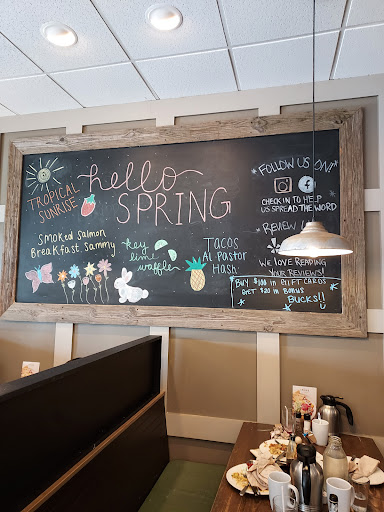 hello
SPRING
TROPICAL
SUNRISE
SMOKED SALMON
BREAKFAST SAMMY
key
lime
waffles
TACOS
AL PASTOR
HASH
*FOLLOW US ON!*
CHECK IN TO HELP
US SPREAD THE WORD
REVIEW
WE LOVE READING
YOUR REVIEWS!
BUY $100 IN GIFT CARDS
GET $20 IN BONUS
BUCKS!!